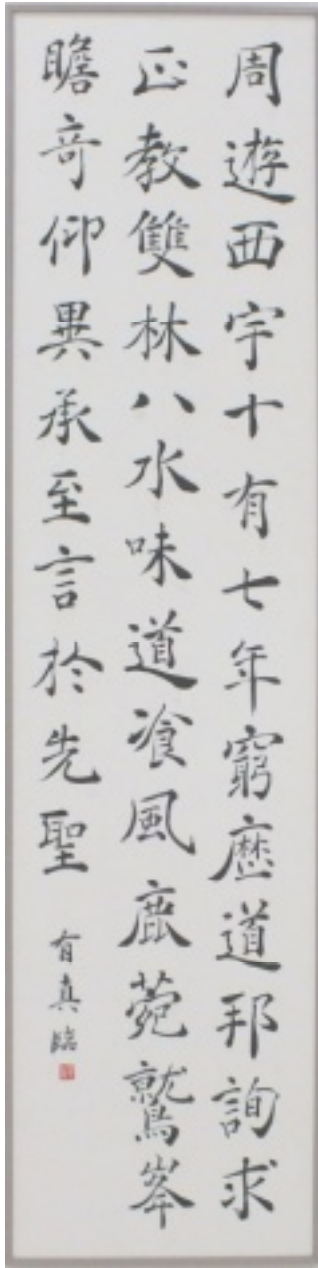 周遊西宇十有七年窮歷道邦詢求
正教雙林八水味道飡風鹿菀鷲峯
瞻奇仰異承至言於先聖
有真臨